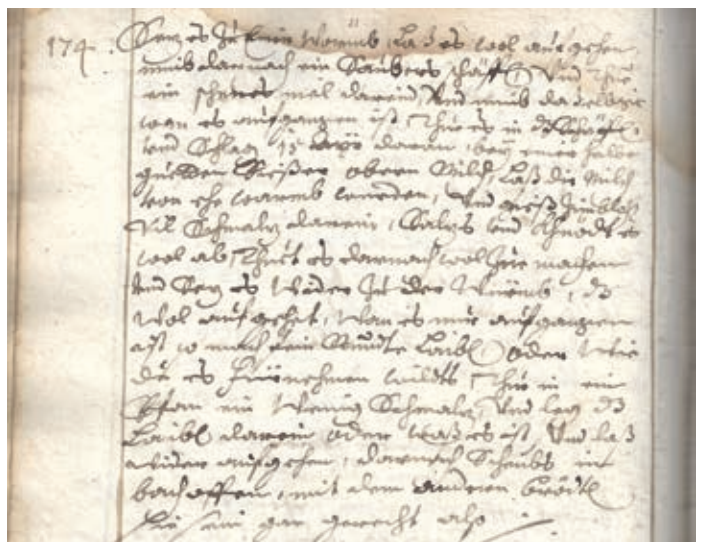 174. Sez es zu einer Wörmb, Laß es wol auf gehen,
nimb darnach ein Saubers schäffl, Und Thue
ein schenes mel darein, Und nimb das
wan es aufgangen ist, Thue es in d schäffl,
und Schlag 15 Ayr daran, bey einer halbe
guetten Siessen obern Milch, Laß die Milch
von ehe warmb werden, Und gieß
Vil Schmalz darein, Salzs und Khnödt es
wol ab, Thuet es darnach wol Zue machen
Und Sez es wider Zu der Wörmb, dz
Wol auf gehet, Wan es nur aufgangen
ist so mach klein Rundte Laibl, oder Wie
du es fürnehmen wildts, Thue in ein
Pfan ein Wenig Schmalz, Und leg dz
Laibl darein oder waß es ist, Und laß
wider aufgehen, darnach Scheubs in
bachoffen, mit dem anderen brödtl
sie sein gar gerecht also